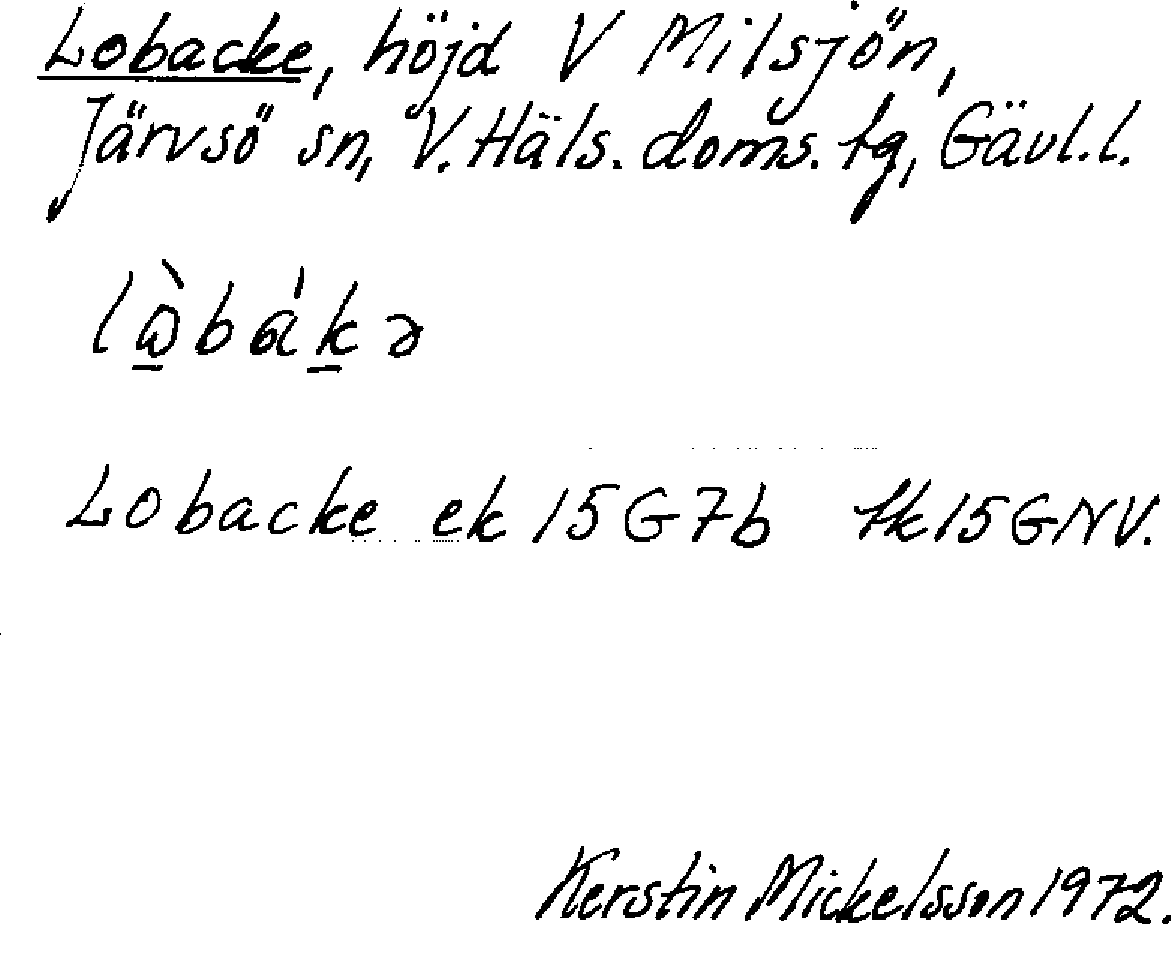 Lobacke, höjd V Milsjön,
Järvsö sn, V. Häls. doms. tg, Gävl. l.
lὼ̱báḵə
Lobacke ek 15G7b tk15GNV.
Kerstin Mickelsson 1972.